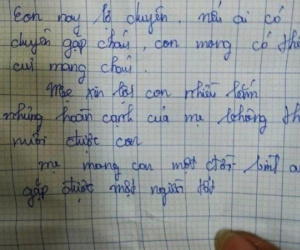 Con nay lỡ chuyến. nếu ai có
duyên gặp cháu, con mong có
cưu mang cháu.
Mẹ xin lỗi con nhiều lắm
nhưng hoàn cảnh của mẹ không
nuôi được con
mẹ mong con một đời bình
gặp được một người tốt